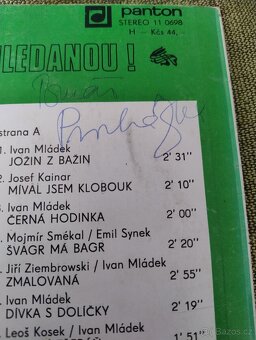 panton
STEREO 11 0698
H – Kčs 44,–
HLEDANOU !
strana A
1. Ivan Mládek
JOŽIN Z BAŽIN 2' 31''
Josef Kainar
MÍVAL JSEM KLOBOUK 2' 10''
Ivan Mládek
ČERNÁ HODINKA 2' 00''
Mojmír Smékal / Emil Synek
ŠVAGR MÁ BAGR 2' 20''
Jiří Ziembrowski / Ivan Mládek
ZMALOVANÁ 2' 55''
Ivan Mládek
DÍVKA S DOLÍČKY 2' 19''
Leoš Kosek / Ivan Mládek
1' 51